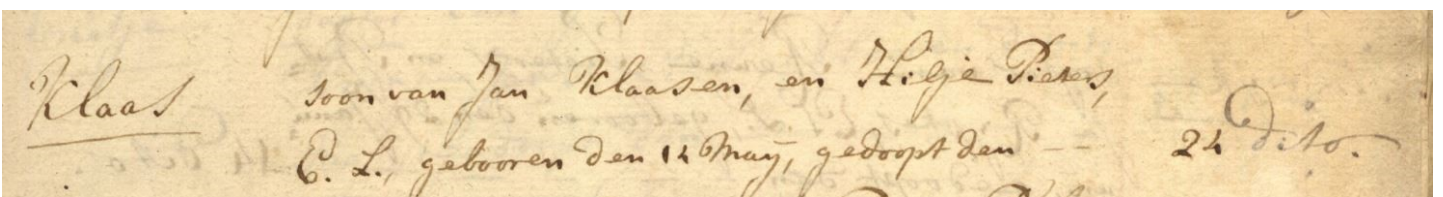 Klaas soon van Jan Klaasen, en Hilje Pieters,
E. L., gebooren den 14 Maÿ, gedoopt den -- 24 dito.